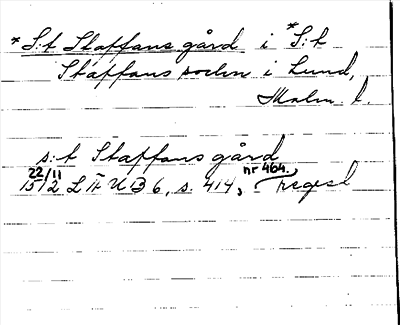 *S:t Staffans gård i *S:t
Staffans socken i Lund,
Malm. l.
s:t Staffans gård
22/11 nr 464.
1512 LÄU 36, s. 414, regest